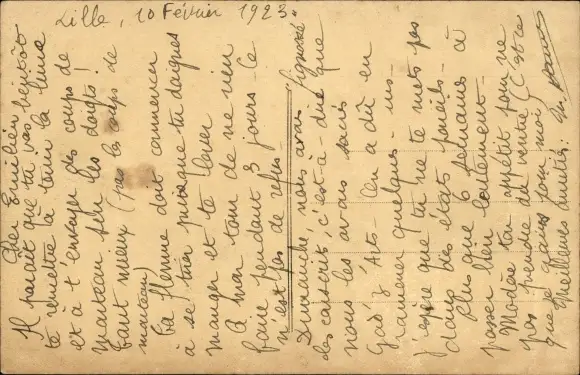 Lille, 10 Février 1923.
Cher Emilien
Il paraît que tu vas bientôt
te remettre à tenir la lime
et à t'envoyer des coups de
marteau sur les doigts!
Vaut mieux (pas les coups de
marteau)
Ta flemme doit commencer
à se tirer puisque tu daignes
manger et te laver
A mon tour de ne rien
faire pendant 3 jours ce
n'est pas de refus—
Dimanche, nous avais "
des conscrits, c'est-à-dire que
nous les avais
Gad'z'Arts— On a dû en
ramener quelques-uns—
J'espère que tu ne te mets pas
dans des états pareils— à
Plus que 6 semaines à
passer Bien lentement—
Modère ton appétit pour ne
pas prendre du ventre (C'est ce
que je crains pour moi)
Meilleures amitiés.